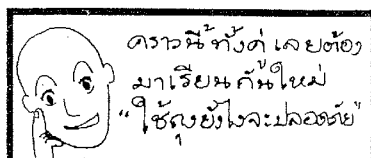 คราวนี้ ทั้งคู่ เลยต้อง
มาเรียนกันใหม่
"ใช้ถุงยังไงจะปลอดภัย"